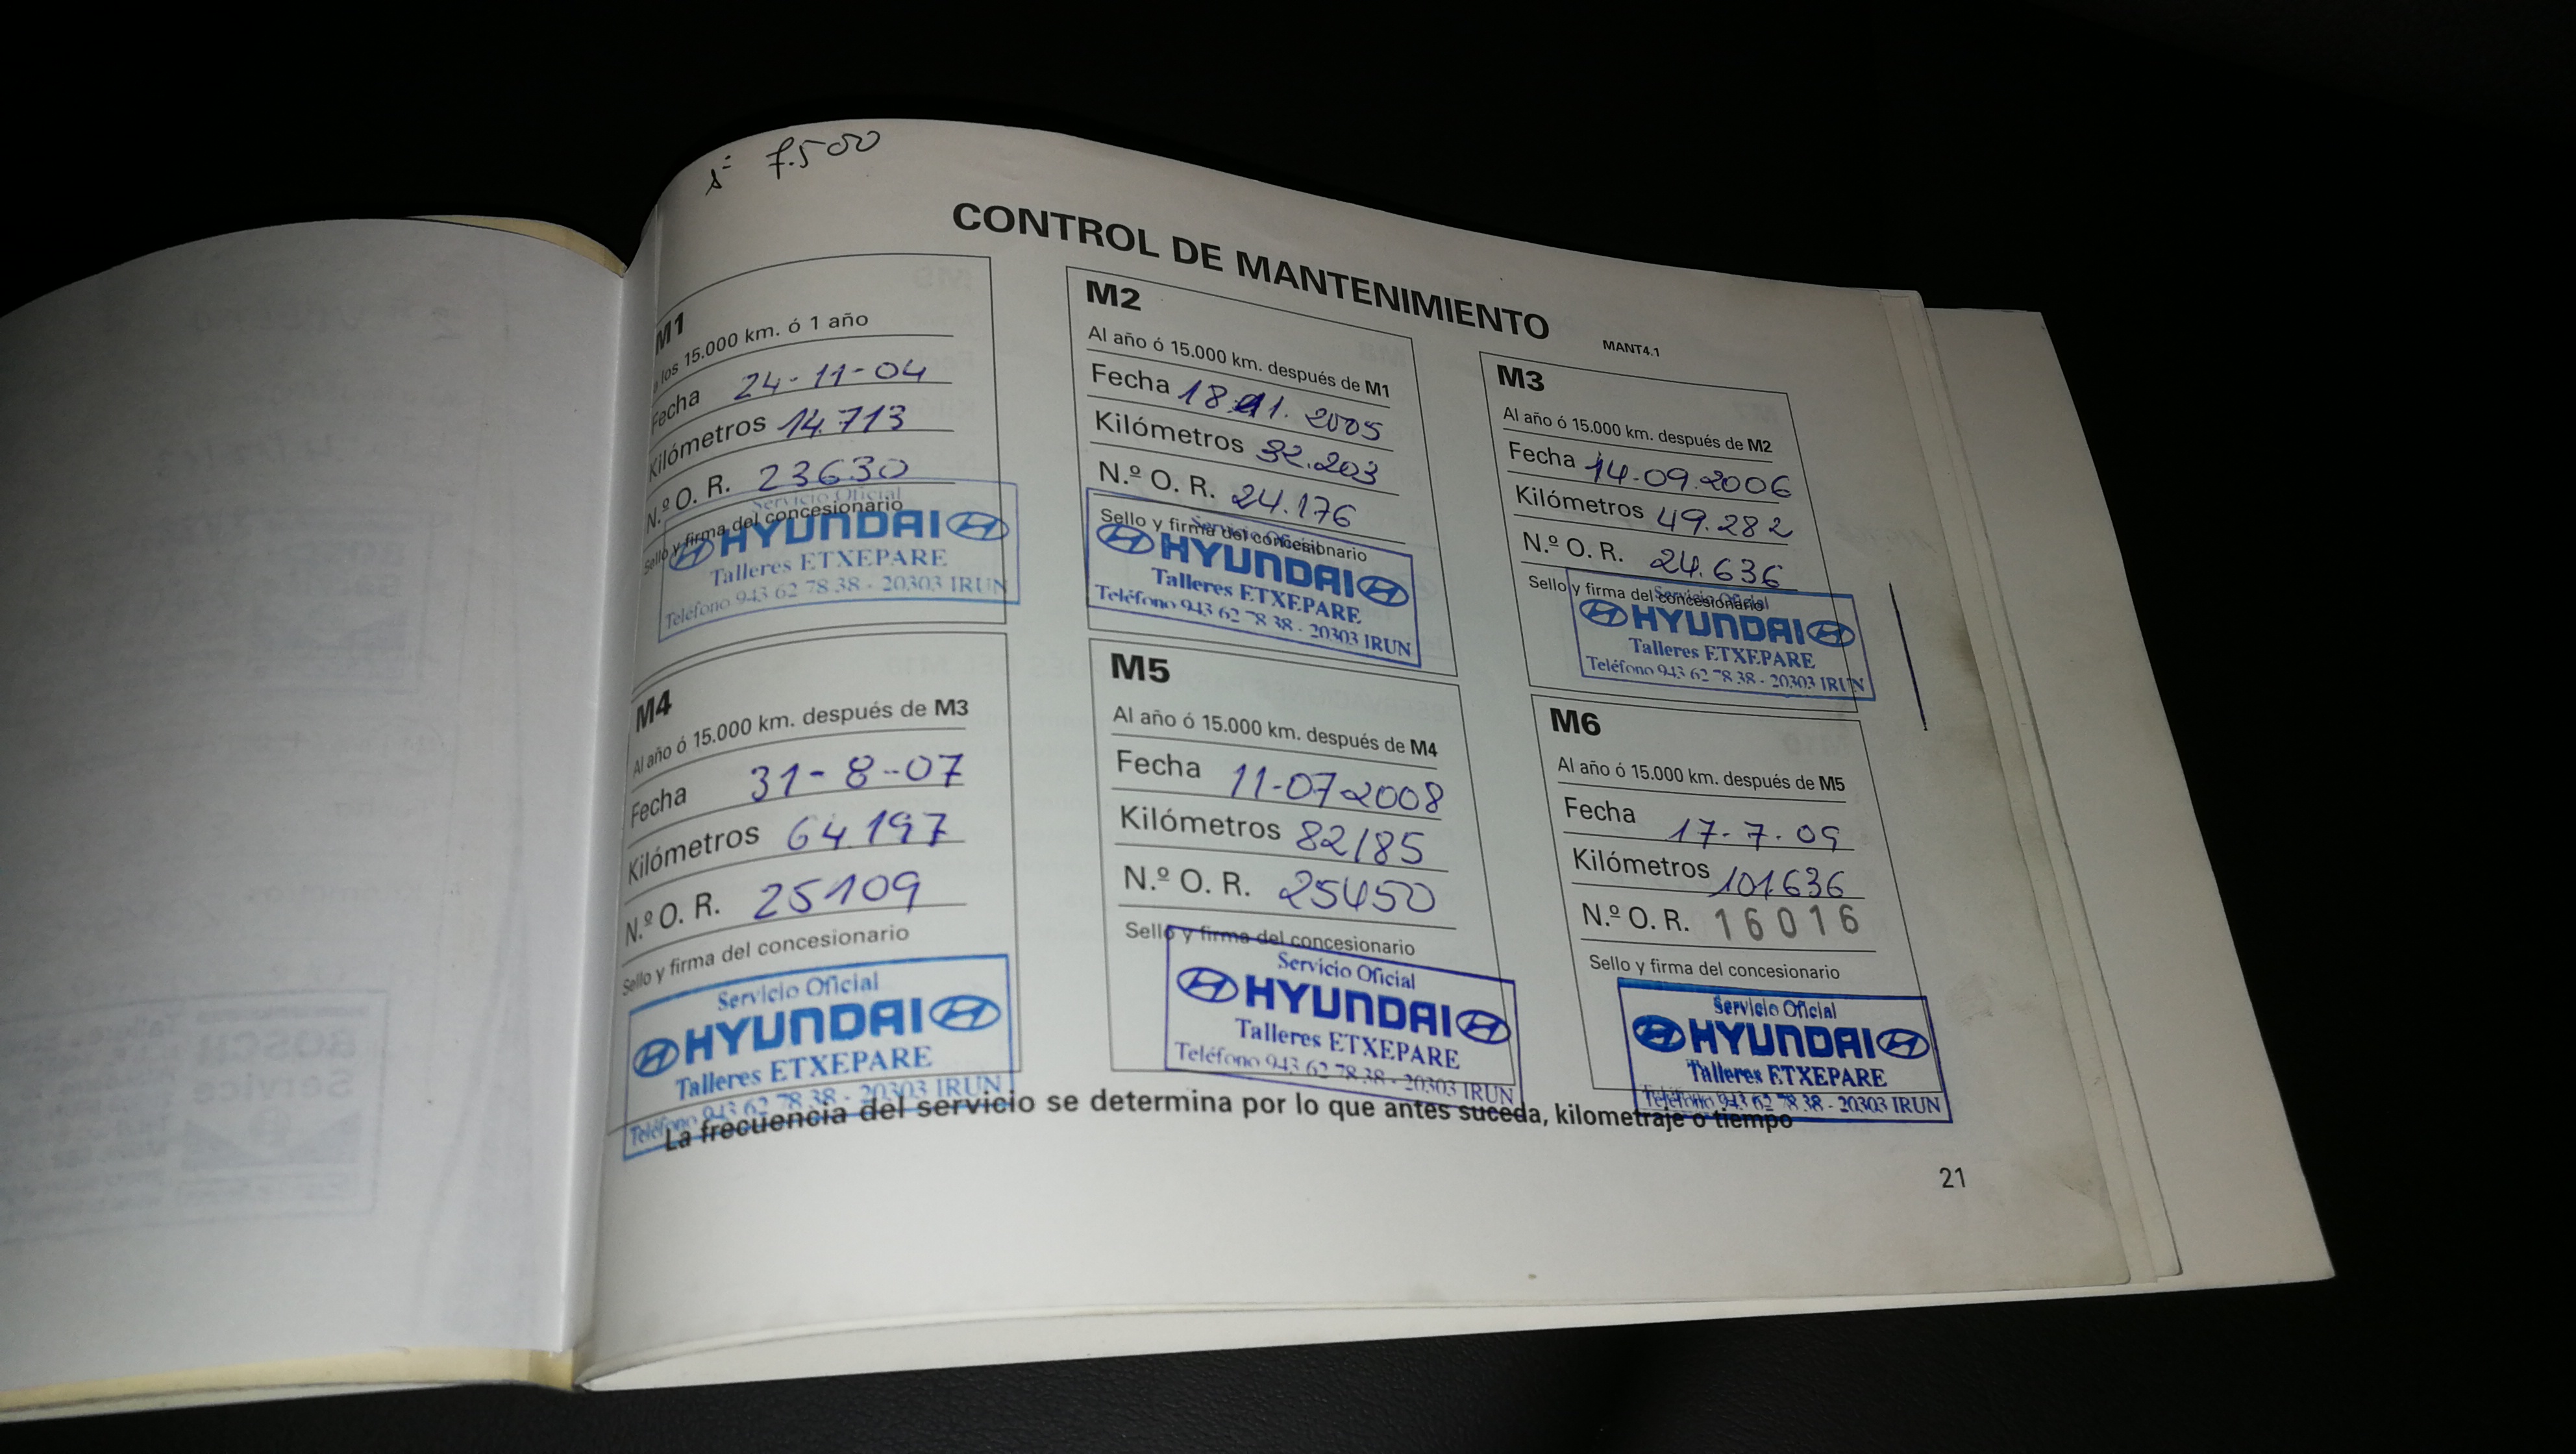 7.500
CONTROL DE MANTENIMIENTO
MANT4.1
M1
a los 15.000 km. ó 1 año
Fecha 24-11-04
Kilómetros 14.713
N.º O. R. 23630
Sello y firma del concesionario
Servicio Oficial
HYUNDAI
Talleres ETXEPARE
Teléfono 943 62 78 38 - 20303 IRUN
M2
Al año ó 15.000 km. después de M1
Fecha 18.11.2005
Kilómetros 32.203
N.º O. R. 24.176
Sello y firma del concesionario
Servicio Oficial
HYUNDAI
Talleres ETXEPARE
Teléfono 943 62 78 38 - 20303 IRUN
M3
Al año ó 15.000 km. después de M2
Fecha 14-09.2006
Kilómetros 49.282
N.º O. R. 24.636
Sello y firma del concesionario
Servicio Oficial
HYUNDAI
Talleres ETXEPARE
Teléfono 943 62 78 38 - 20303 IRUN
M4
Al año ó 15.000 km. después de M3
Fecha 31-8-07
Kilómetros 64.197
N.º O. R. 25109
Sello y firma del concesionario
Servicio Oficial
HYUNDAI
Talleres ETXEPARE
Teléfono 943 62 78 38 - 20303 IRUN
M5
Al año ó 15.000 km. después de M4
Fecha 11-07-2008
Kilómetros 82185
N.º O. R. 25450
Sello y firma del concesionario
Servicio Oficial
HYUNDAI
Talleres ETXEPARE
Teléfono 943 62 78 38 - 20303 IRUN
M6
Al año ó 15.000 km. después de M5
Fecha 17-7-09
Kilómetros 101.636
N.º O. R. 16016
Sello y firma del concesionario
Servicio Oficial
HYUNDAI
Talleres ETXEPARE
Teléfono 943 62 78 38 - 20303 IRUN
La frecuencia del servicio se determina por lo que antes suceda, kilometraje o tiempo
21